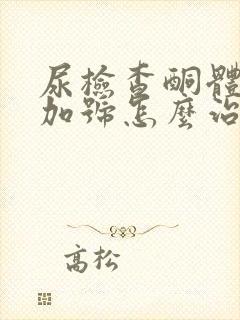 尿檢查酮體
加號怎麼治
高松